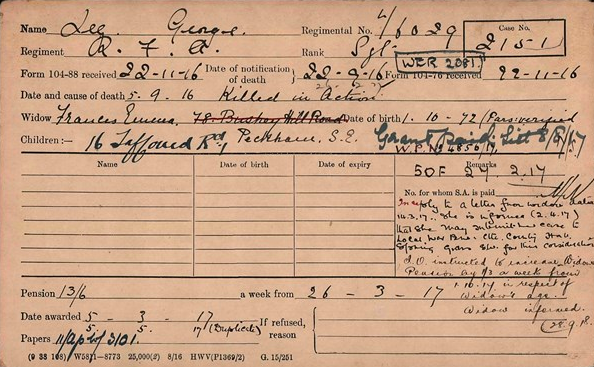 Name Lee George Regimental No. L/6029 Case No.
Regiment R. F. A. Rank Sgt. 2151
WER 2081
Form 104-88 received 22-11-16 Date of notification of death } 22-9-16 Form 104-76 received 22-11-16
Date and cause of death 5. 9. 16 Killed in Action
Widow Frances Emma, 78. Bushey Hill Road Date of birth 1. 10. 72 (Pars: verified
Children:— 16 Rd, Peckham, S.E. Grant paid. List 8/8/17
W.P. No 4856/17
Name Date of birth Date of expiry Remarks
SOF 27 2.17
No. for whom S.A. is paid
In reply to a letter from widow dated
14.3.17. She is informed (2.4.17)
that she may submit her case to
Local War Pens. Ctte. County Hall
Spring Gdns SW. for this consideration
I.O. instructed to increase Widow's
Pension by 1/3 a week from
in respect of
Pension 13/6 a week from 26 - 3 - 17 Widow's age.
Widow informed.
(28.9.18.
Date awarded 5 - 3 - 17
5. 5. 17 (Duplicate) If refused, reason
Papers 11/ap of 3101.
(9 38 108) W5811—8773 25,000(2) 8/16 HWV(P1369/2) G. 15/251